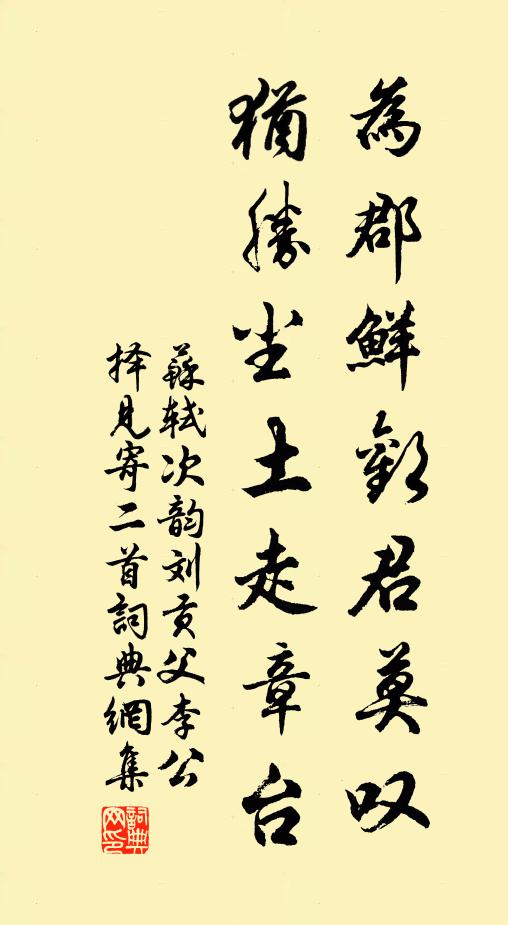 為郡鮮歡君莫叹
猶勝尘土走章台
蘇轼次韵刘贡父李公
择见寄二首詞典網集
詞典网印